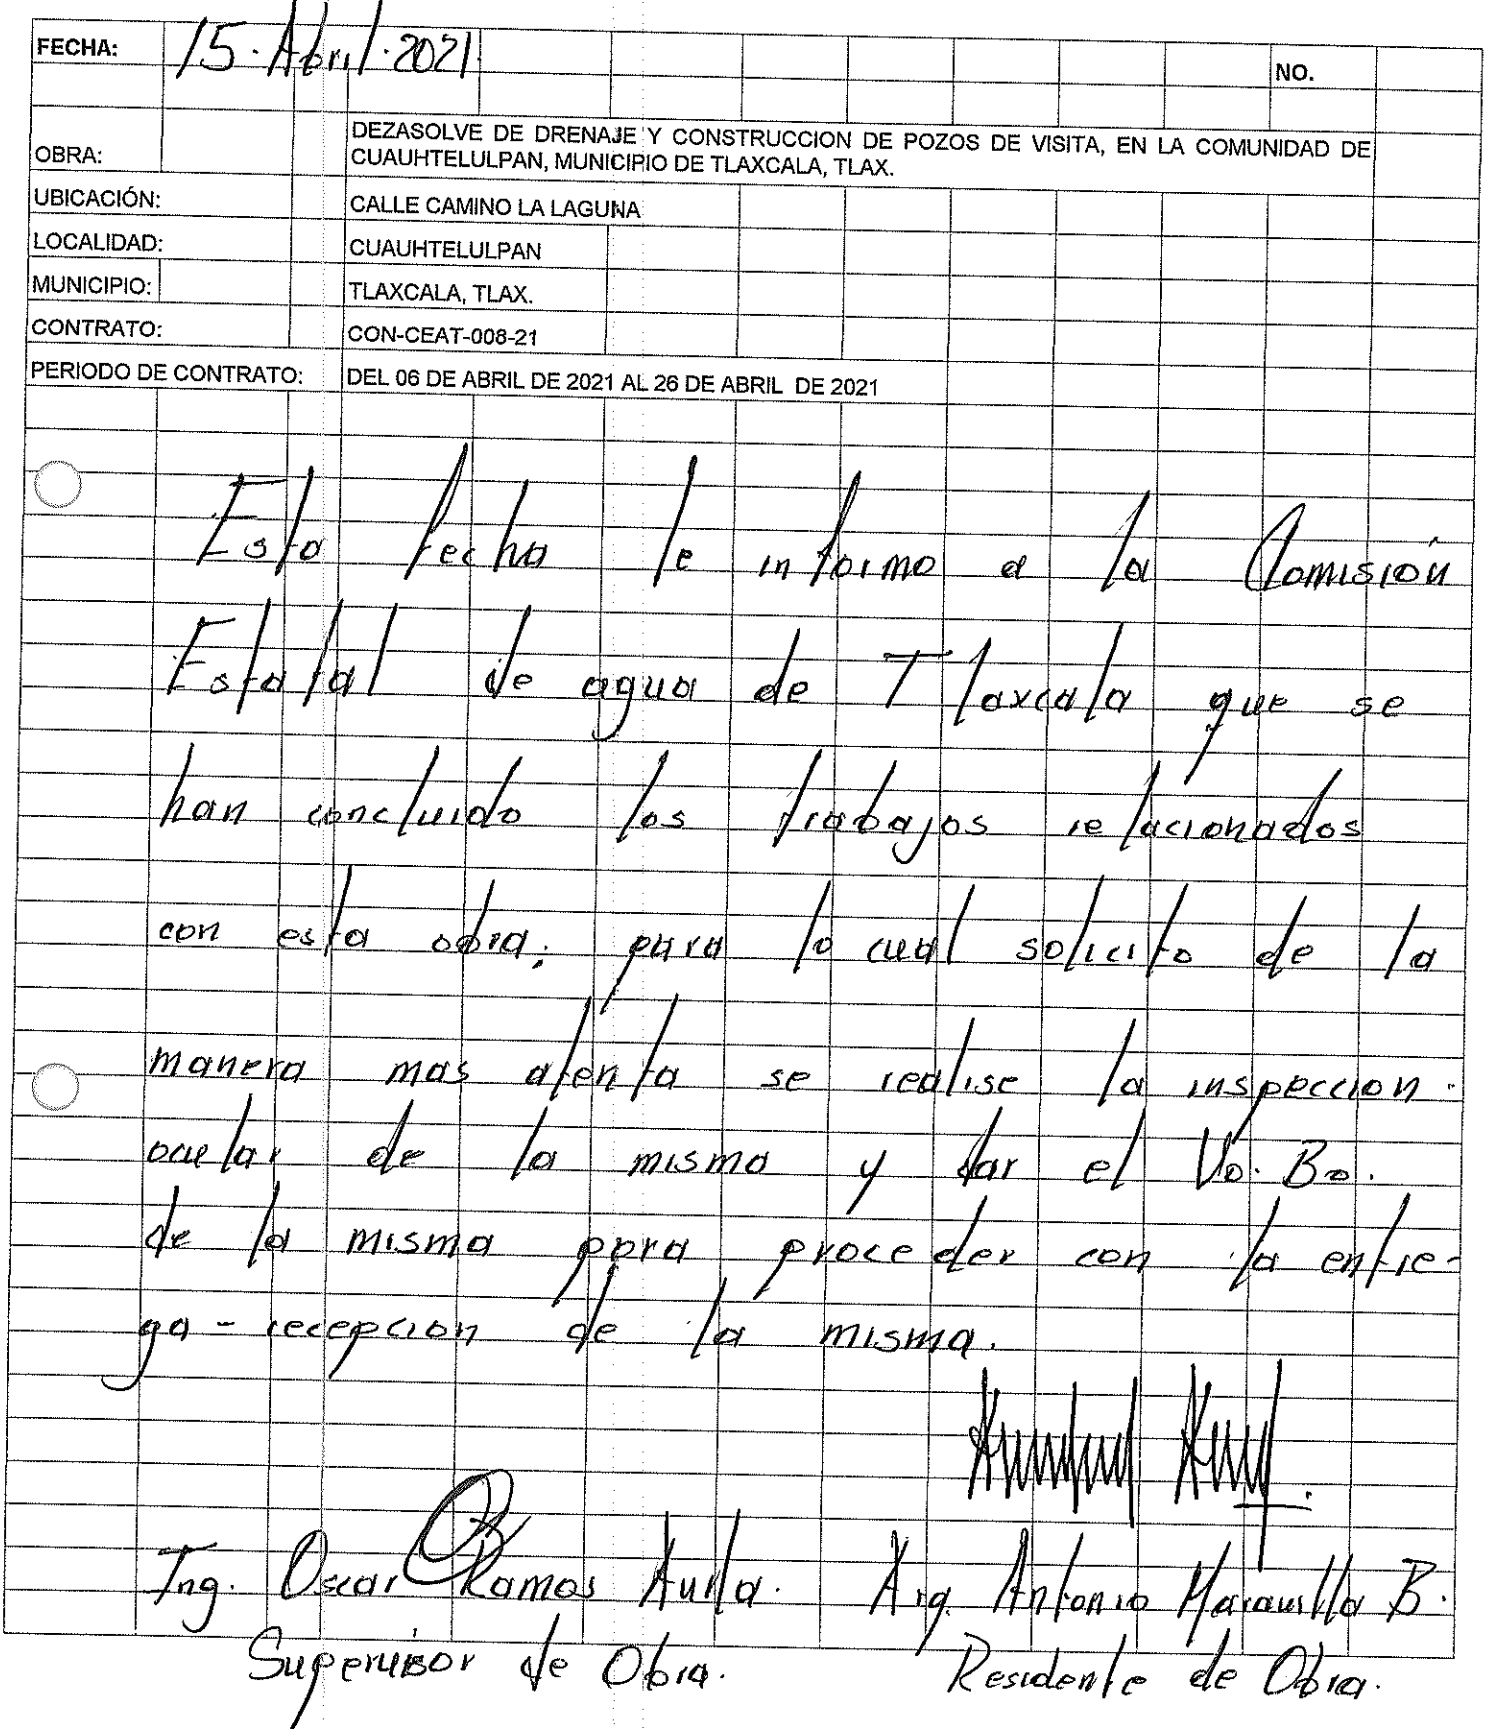 FECHA: 15·Abril·2021 NO.
OBRA: DEZASOLVE DE DRENAJE Y CONSTRUCCION DE POZOS DE VISITA, EN LA COMUNIDAD DE
CUAUHTELULPAN, MUNICIPIO DE TLAXCALA, TLAX.
UBICACIÓN: CALLE CAMINO LA LAGUNA
LOCALIDAD: CUAUHTELULPAN
MUNICIPIO: TLAXCALA, TLAX.
CONTRATO: CON-CEAT-008-21
PERIODO DE CONTRATO: DEL 06 DE ABRIL DE 2021 AL 26 DE ABRIL DE 2021
Esta fecha le informo a la Comisión
Estatal de agua de Tlaxcala que se
han concluido los trabajos relacionados
con esta obra; para lo cual solicito de la
manera mas atenta se realise la inspeccion
ocular de la misma y dar el Vo. Bo.
de la misma para proceder con la entre-
ga-recepcion de la misma.
Ing. Oscar Ramos Avila. Arq. Antonio Maravilla B.
Supervisor de Obra. Residente de Obra.